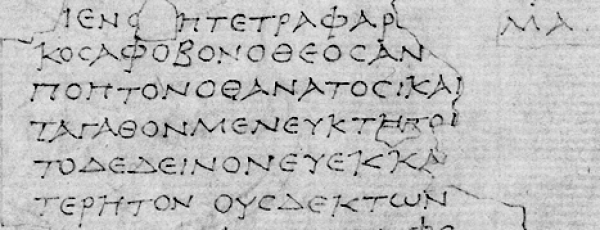 ΙΕΝΟ ΗΤΕΤΡΑΦΑΡ ΜΑ
ΚΟϹΑΦΟΒΟΝΟΘΕΟϹΑΝ
ΠΟΠΤΟΝΟΘΑΝΑΤΟϹΙΚΑΙ
ΤΑΓΑΘΟΝΜΕΝΕΥΚΤΗΤΟΙ
ΤΟΔΕΔΕΙΝΟΝΕΥΕΚΚΑ
ΤΕΡΗΤΟΝ ΟΥϹΔΕΚΤΩΝ